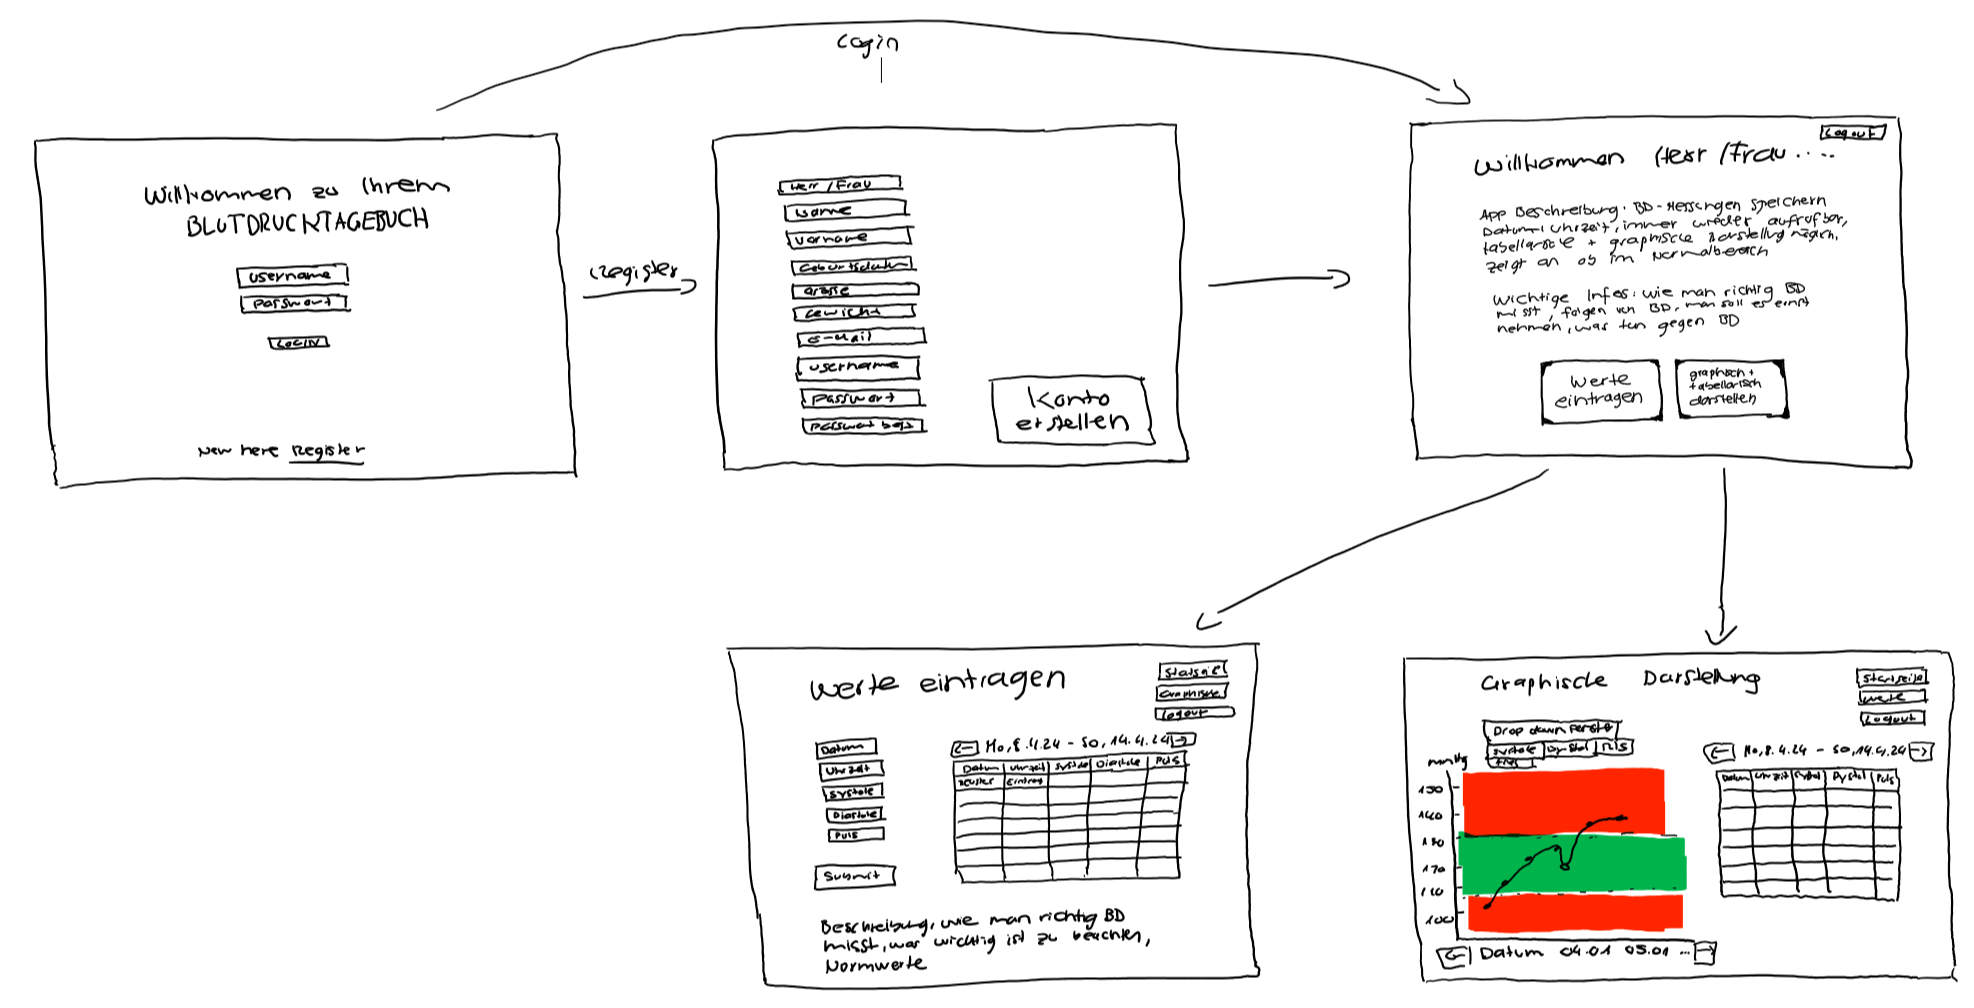 Login
Willkommen zu Ihrem
BLUTDRUCKTAGEBUCH
username
Passwort
LOGIN
New here Register
Register
Herr / Frau
Name
Vorname
Geburtsdatum
Grösse
Gewicht
E-Mail
username
Passwort
Passwort best
Konto
erstellen
Logout
Willkommen Herr / Frau ....
App Beschreibung: BD-Messungen speichern
Datum + Uhrzeit, immer wieder aufrufbar,
tabellarische + graphische Darstellung
zeigt an ob im Normalbereich
Wichtige Infos: wie man richtig BD
misst, folgen von BD, man soll es ernst
nehmen, was tun gegen BD
Werte
eintragen
graphisch +
tabellarisch
darstellen
Werte eintragen
Graphische
Logout
Datum
Uhrzeit
Systole
Diastole
Puls
Submit
← Mo, 8.4.24 - So, 14.4.24 →
Datum Uhrzeit Systole Diastole Puls
neuster Eintrag
Beschreibung, wie man richtig BD
misst, was wichtig ist zu beachten,
Normwerte
Graphische Darstellung
Startseite
Werte
Logout
Drop down
Systole Dystol Puls
mmHg
150
140
130
120
110
100
← Datum 04.01 05.01 ... →
← Mo, 8.4.24 - So, 14.4.24 →
Datum Uhrzeit Systol Dystol Puls